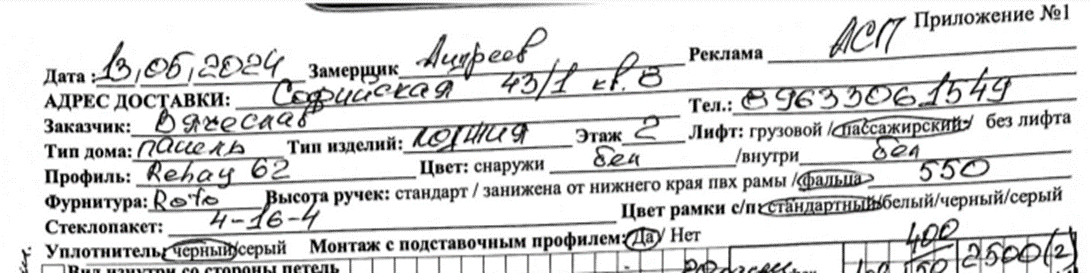 Приложение №1
Дата : 13,05,2024 Замерщик Андреев Реклама АСП
АДРЕС ДОСТАВКИ: Софийская 43/1 кв. 8
Заказчик: Вячеслав Тел.: 89633061549
Тип дома: панель Тип изделий: лоджия Этаж 2 Лифт: грузовой / пассажирский / без лифта
Профиль: Rehay 62 Цвет: снаружи бел /внутри бел
Фурнитура: Roto Высота ручек: стандарт / занижена от нижнего края пвх рамы / фальца 550
Стеклопакет: 4-16-4 Цвет рамки с/п: стандартный/белый/черный/серый
Уплотнитель: черный/серый Монтаж с подставочным профилем: Да / Нет
Вид изнутри со стороны петель 400 2500(2)